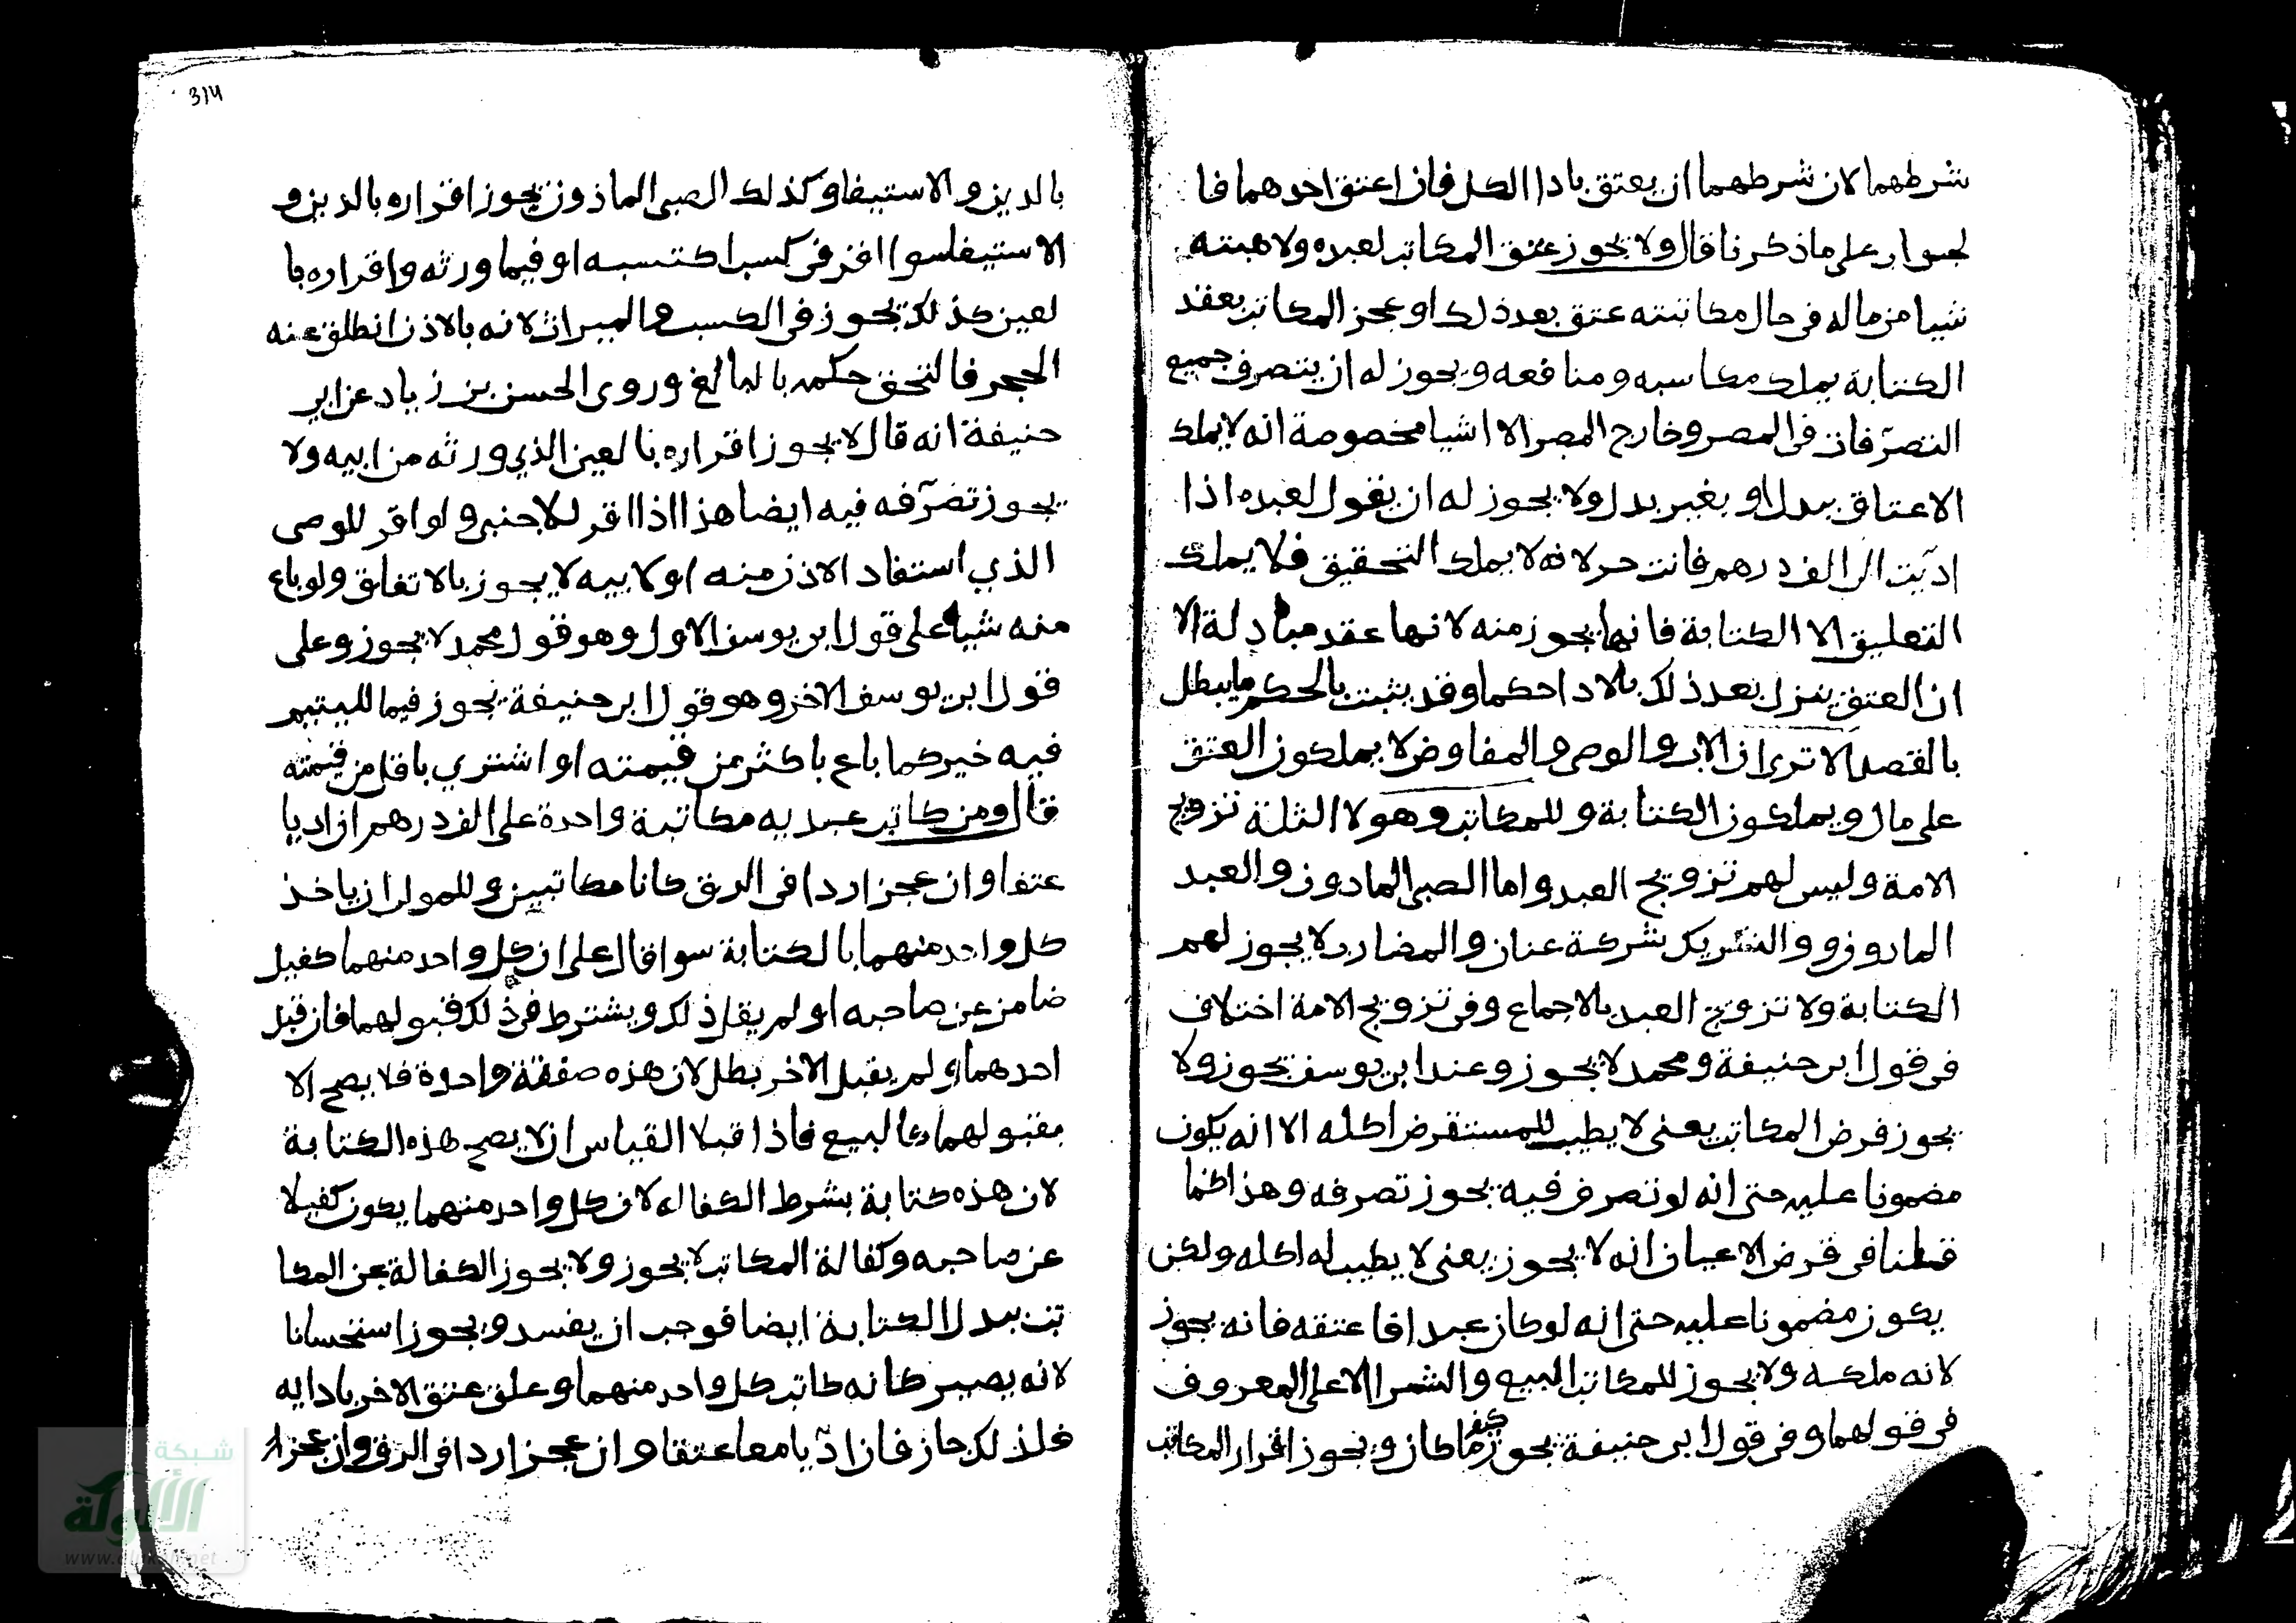 شرطهما لان شرطهما ان يعتق بادا الكل فان اعتق احدهما فا
لجوار على ما ذكرنا قال ولا يجوز عتق المكاتب لعبده ولا هبته
شيا من ماله في حال مكاتبته عتق بعد ذلك او عجز المكاتب بعقد
الكتابة يملك مكاسبه ومنافعه ويجوز له ان يتصرف جميع
التصرّفات في المصر وخارج المصر الا اشيا مخصوصة انه لا يملك
الاعتاق ببدل او بغير بدل ولا يجوز له ان يقول لعبده اذا
ادّيت الي الف درهم فانت حر لانه لا يملك التحقيق فلا يملك
التعليق الا الكتابة فانها يجوز منه لانها عقد مبادلة الا
ان العتق ينزل بعد ذلك بالادا حكما وقد يثبت بالحكم ما يبطل
بالقصد الا ترى ان الاب والوصي والمفاوض لا يملكون العتق
على مال ويملكون الكتابة وللمكاتب وهولا الثلثة تزويج
الامة وليس لهم تزويج العبد واما الصبي الماذون والعبد
الماذون والشريك شركة عنان والمضارب لا يجوز لهم
الكتابة ولا تزويج العبد بالاجماع وفي تزويج الامة اختلاف
في قول ابي حنيفة ومحمد لا يجوز وعند ابي يوسف يجوز ولا
يجوز قرض المكاتب يعني لا يطيب للمستقرض اكله الا انه يكون
مضمونا عليه حتى انه لو تصرف فيه يجوز تصرفه وهذا كما
قلنا في قرض الاعيان انه لا يجوز يعني لا يطيب له اكله ولكن
يكون مضمونا عليه حتى انه لو كان عبدا فاعتقه فانه يجوز
لانه ملكه ولا يجوز للمكاتب البيع والشرا الا على المعروف
في قولهما وفي قول ابي حنيفة يجوز كيف ما كان ويجوز اقرار المكاتب
314
بالدين والاستيفا وكذلك الصبي الماذون يجوز اقراره بالدين و
الاستيفا سوا اقر في كسب اكتسبه او فيما ورثه واقراره با
لعين كذلك يجوز في الكسب والميراث لانه بالاذن انطلق عنه
الحجر فالتحق حكمه بالبالغ وروى الحسن بن زياد عن ابي
حنيفة انه قال لا يجوز اقراره بالعين الذي ورثه من ابيه ولا
يجوز تصرّفه فيه ايضا هذا اذا اقر للاجنبي ولو اقر للوصي
الذي استفاد الاذن منه او لابيه لا يجوز بالاتفاق ولو باع
منه شيا على قول ابي يوسف الاول وهو قول محمد لا يجوز وعلى
قول ابي يوسف الاخر وهو قول ابي حنيفة يجوز فيما لليتيم
فيه خير كما باع باكثر من قيمته او اشتري باقل من قيمته
قال ومن كاتب عبديه مكاتبة واحدة على الف درهم ان اديا
عتقا وان عجزا ردا في الرق كانا مكاتبين وللمولى ان ياخذ
كل واحد منهما بالكتابة سوا قال على ان كل واحد منهما كفيل
ضامن عن صاحبه او لم يقل ذلك ويشترط في ذلك قبولهما فان قبل
احدهما ولم يقبل الاخر بطل لان هذه صفقة واحدة فلا يصح الا
بقبولهما كالبيع فاذا قبلا القياس ان لا يصح هذه الكتابة
لان هذه كتابة بشرط الكفاله لان كل واحد منهما يكون كفيلا
عن صاحبه وكفالة المكاتب لا يجوز ولا يجوز الكفالة عن المكا
تب ببدل الكتابة ايضا فوجب ان يفسد ويجوز استحسانا
لانه يصير كانه كاتب كل واحد منهما وعلق عتق الاخر بادايه
فلذلك جاز فان ادّيا معا عتقا وان عجزا ردا في الرق وان عجز ا
شبكة
الألوكة
www.alukah.net